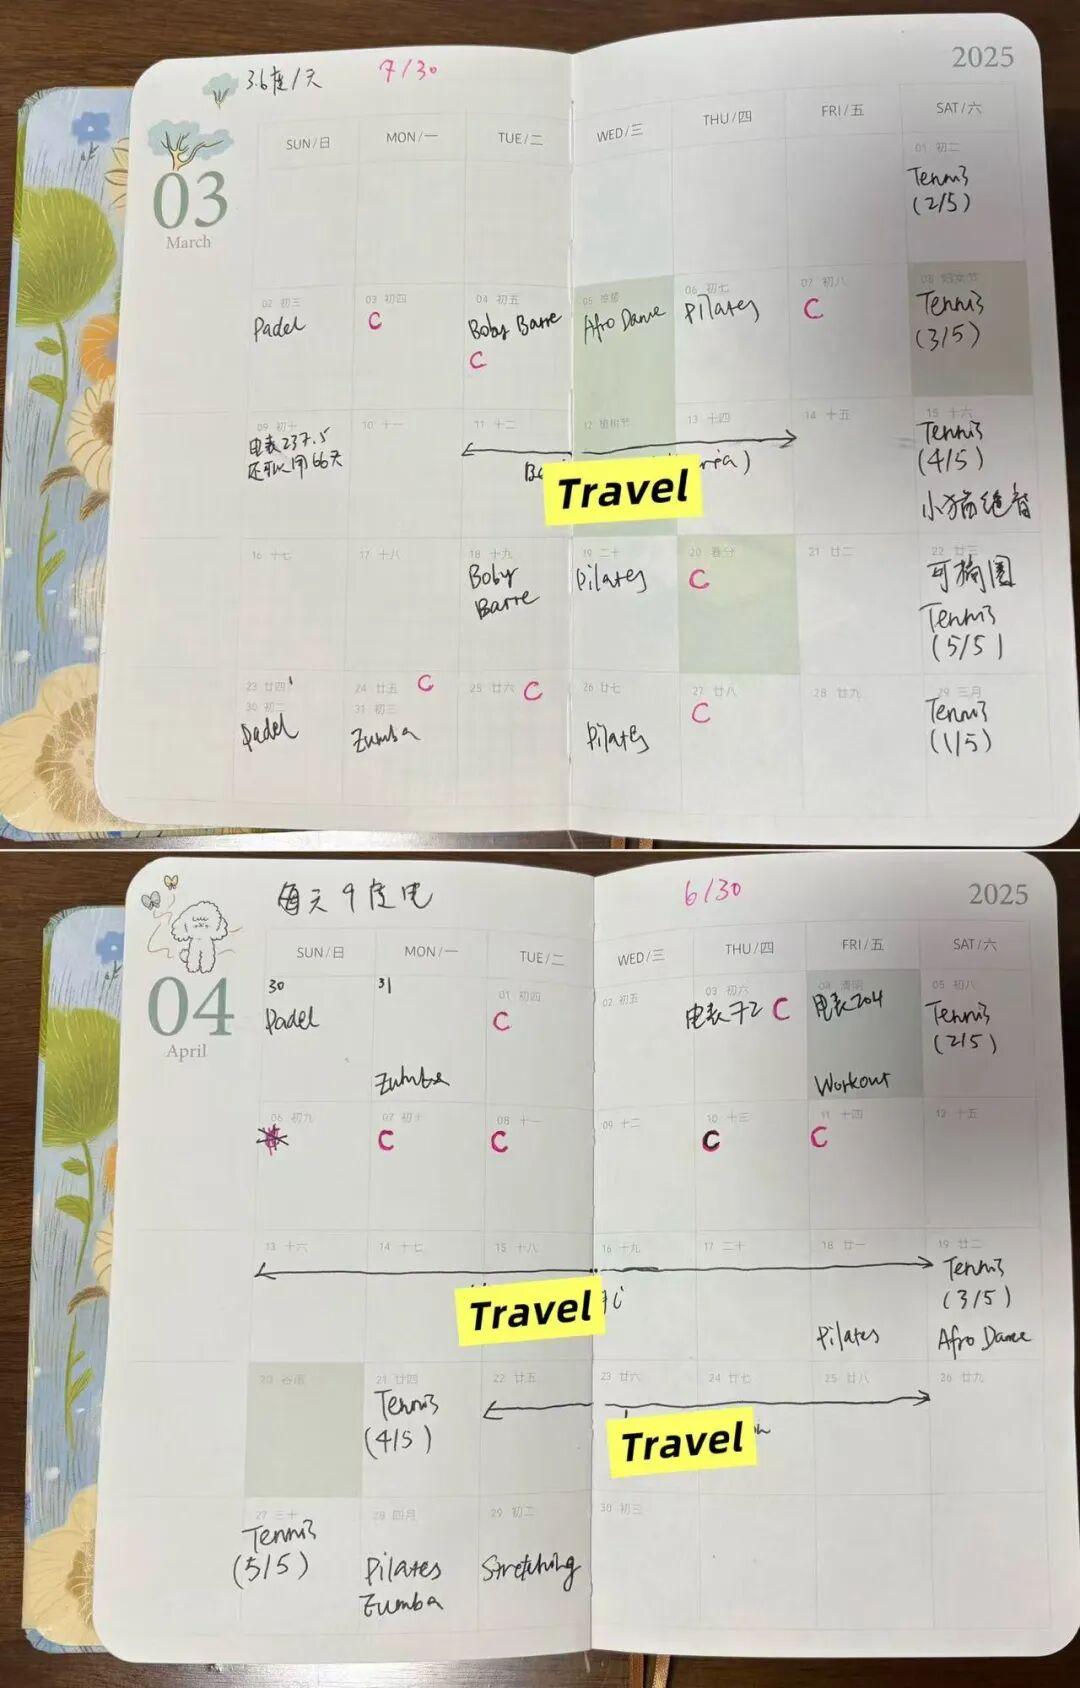 3.6度/天
7/30
2025
03
March
SUN/日 MON/一 TUE/二 WED/三 THU/四 FRI/五 SAT/六
01 初二
Tennis
(2/5)
02 初三
Padel
03 初四
C
04 初五
Boby Barre
C
05 惊蛰
Afro Dance
06 初七
Pilates
07 初八
C
08 妇女节
Tennis
(3/5)
09 初十
电表237.5
还可以用66天
10 十一
11 十二
12 植树节
13 十四
14 十五
Travel
15 十六
Tennis
(4/5)
小猫绝育
16 十七
17 十八
18 十九
Boby
Barre
19 二十
Pilates
20 春分
C
21 廿二
22 廿三
可摘圈
Tennis
(5/5)
23 廿四
30 初二
Padel
24 廿五
C
31 初三
Zumba
25 廿六
C
26 廿七
Pilates
27 廿八
C
28 廿九
29 三月
Tennis
(1/5)
每天9度电
6/30
2025
04
April
SUN/日 MON/一 TUE/二 WED/三 THU/四 FRI/五 SAT/六
30
Padel
31
Zumba
01 初四
C
02 初五
03 初六
电表72 C
04 清明
电表204
Workout
05 初八
Tennis
(2/5)
06 初九
07 初十
C
08 十一
C
09 十二
10 十三
C
11 十四
C
12 十五
13 十六
14 十七
15 十八
16 十九
17 二十
18 廿一
Travel
Pilates
19 廿二
Tennis
(3/5)
Afro Dance
20 谷雨
21 廿四
Tennis
(4/5)
22 廿五
23 廿六
24 廿七
25 廿八
26 廿九
Travel
27 三十
Tennis
(5/5)
28 四月
Pilates
Zumba
29 初二
Stretching
30 初三